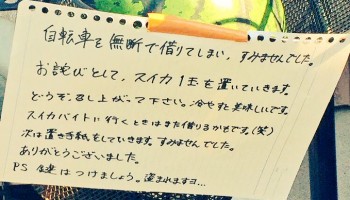 自転車を無断で借りてしまい、すみませんでした。
お詫びとして、スイカ1玉を置いていきます。
どうぞ召し上がって下さい。冷やすと美味しいです。
スイカバイトに行くときはまた借りるかもです。(笑)
次は置き手紙をしていきます。すみませんでした。
ありがとうございました。
PS 鍵はつけましょう。盗まれますヨ…